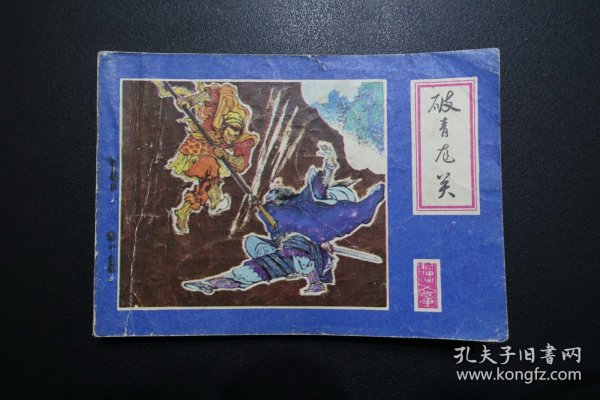 破青龙关
孔夫子旧书网
www.kongfz.com